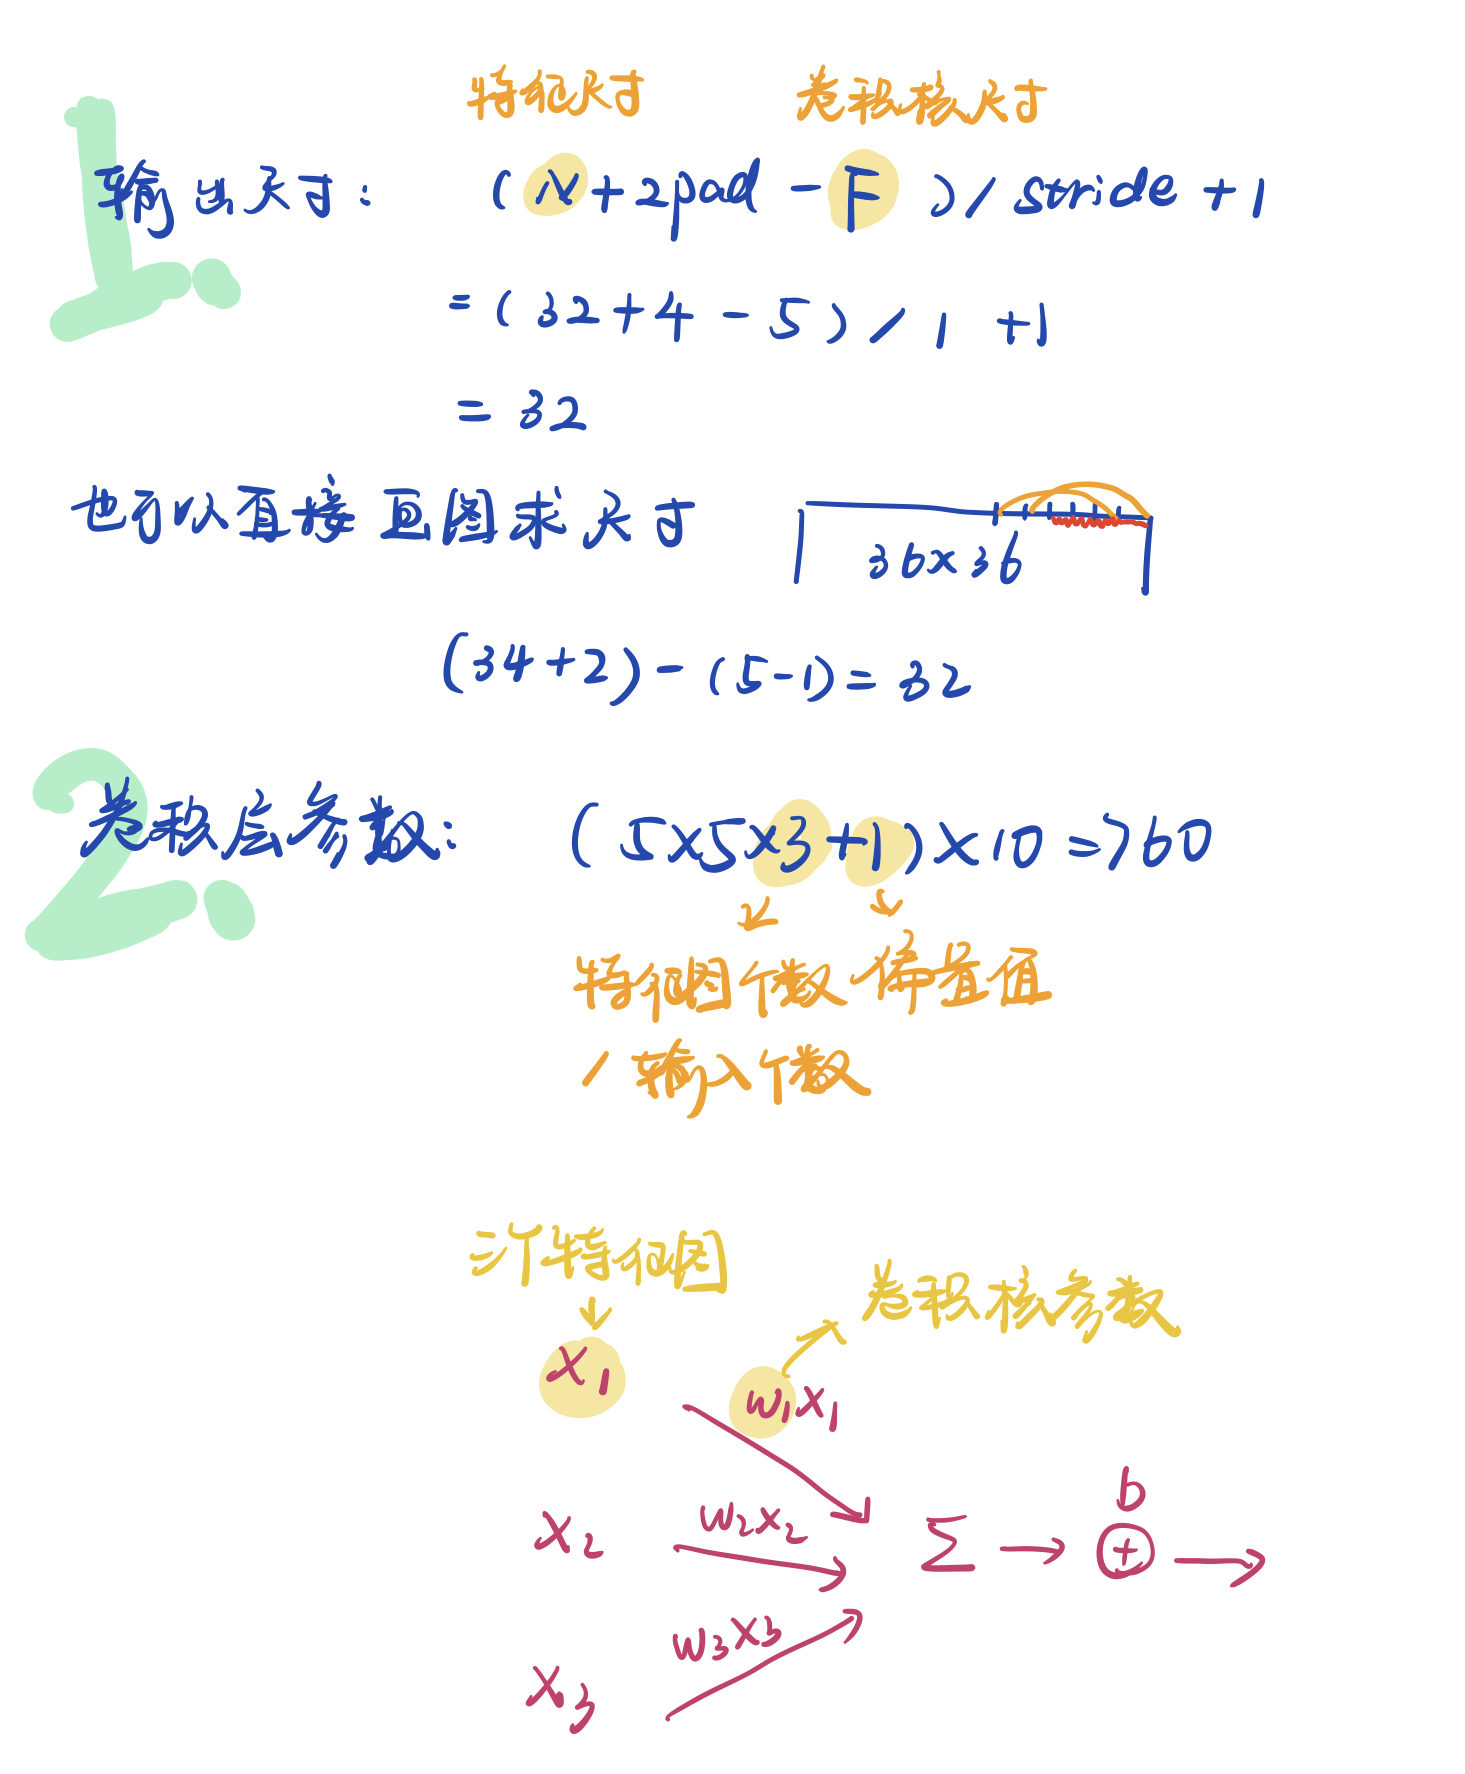 1.
特征尺寸 卷积核尺寸
输出尺寸: (N+2pad-F)/stride+1
=(32+4-5)/1 +1
=32
也可以直接画图求尺寸
36×36
(34+2)-(5-1)=32
2.
卷积层参数: (5×5×3+1)×10=760
特征图个数 偏置值
/输入个数
三个特征图
卷积核参数
x₁
w₁x₁
b
x₂ w₂x₂ Σ → ⊕ →
w₃x₃
x₃